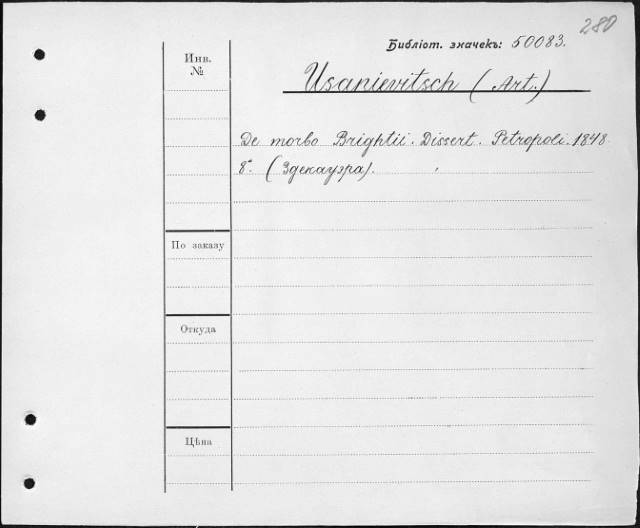 280
Библіот. значекъ: 50083.
Инв.
№
Usanievitsch (Art.)
De morbo Brightii. Dissert. Petropoli. 1848.
8°. (Здекауэра).
По заказу
Откуда
Цѣна